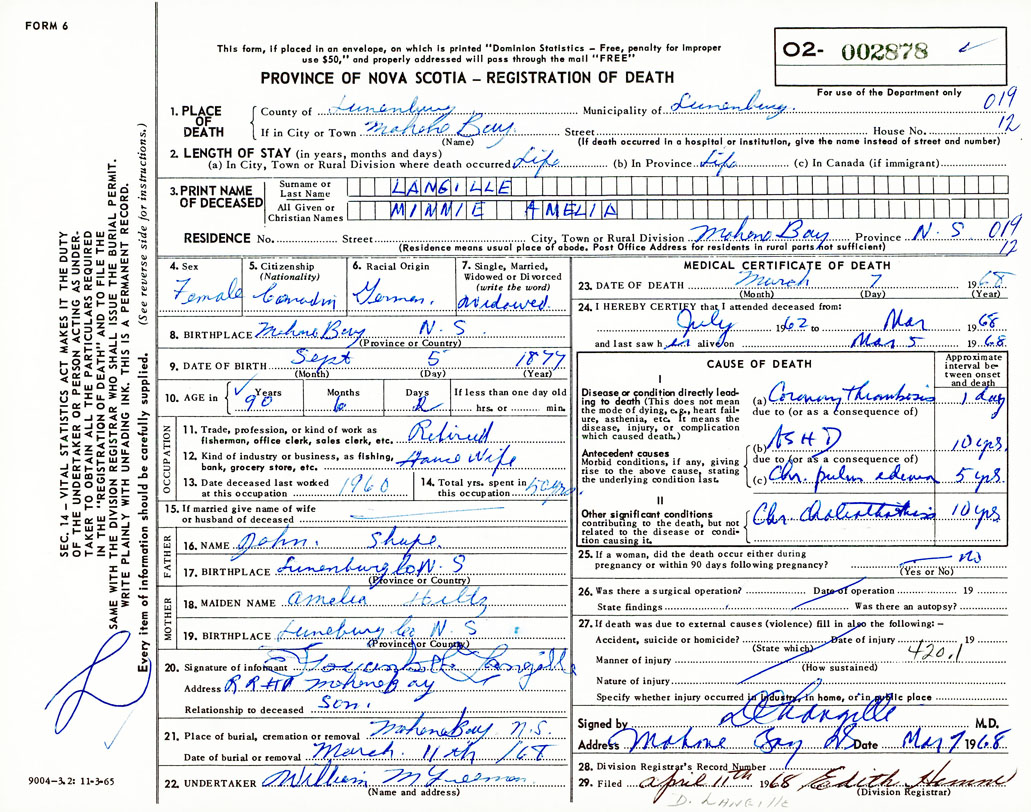 FORM 6
This form, if placed in an envelope, on which is printed "Dominion Statistics – Free, penalty for improper
use $50," and properly addressed will pass through the mail "FREE"
PROVINCE OF NOVA SCOTIA – REGISTRATION OF DEATH
O2- 002878
For use of the Department only
019
12
1. PLACE OF DEATH
County of Lunenburg Municipality of Lunenburg.
If in City or Town Mahone Bay Street House No.
(Name) (If death occurred in a hospital or institution, give the name instead of street and number)
2. LENGTH OF STAY (in years, months and days)
(a) In City, Town or Rural Division where death occurred Life (b) In Province Life (c) In Canada (if immigrant)
3. PRINT NAME OF DECEASED
Surname or Last Name LANGILLE
All Given or Christian Names MINNIE AMELIA
RESIDENCE No. Street City, Town or Rural Division Mahone Bay Province N. S 019
(Residence means usual place of abode. Post Office Address for residents in rural parts not sufficient) 12
4. Sex
Female
5. Citizenship
(Nationality)
6. Racial Origin
German.
7. Single, Married,
Widowed or Divorced
(write the word)
Widowed
8. BIRTHPLACE Mahone Bay N. S.
(Province or Country)
9. DATE OF BIRTH Sept 5 1877
(Month) (Day) (Year)
10. AGE in Years Months Days If less than one day old
90 6 2 hrs. or min.
OCCUPATION
11. Trade, profession, or kind of work as
fisherman, office clerk, sales clerk, etc. Retired
12. Kind of industry or business, as fishing,
bank, grocery store, etc. House Wife
13. Date deceased last worked
at this occupation 1960
14. Total yrs. spent in
this occupation 50 yrs
15. If married give name of wife
or husband of deceased
FATHER
16. NAME John.
17. BIRTHPLACE Lunenburg Co N. S
(Province or Country)
MOTHER
18. MAIDEN NAME Amelia Hiltz
19. BIRTHPLACE Luneburg Co N. S
(Province or Country)
20. Signature of informant Langille
Address R R #1 Mahone Bay
Relationship to deceased Son.
21. Place of burial, cremation or removal Mahone Bay N.S.
Date of burial or removal March 11th /68
22. UNDERTAKER William
(Name and address)
MEDICAL CERTIFICATE OF DEATH
23. DATE OF DEATH March 7 1968
(Month) (Day) (Year)
24. I HEREBY CERTIFY that I attended deceased from:
July 1962 to Mar 1968
and last saw h er alive on Mar 5 1968
CAUSE OF DEATH
Approximate
interval be-
tween onset
and death
I
Disease or condition directly lead-
ing to death (This does not mean
the mode of dying, e.g., heart fail-
ure, asthenia, etc. It means the
disease, injury, or complication
which caused death.)
(a) Coronary thrombosis 1 day
due to (or as a consequence of)
Antecedent causes
Morbid conditions, if any, giving
rise to the above cause, stating
the underlying condition last.
(b) A S H D 10 yrs.
due to (or as a consequence of)
(c) Chr. pulm edema 5 yrs.
II
Other significant conditions
contributing to the death, but not
related to the disease or condi-
tion causing it.
Chr. 10 yrs
25. If a woman, did the death occur either during
pregnancy or within 90 days following pregnancy? No
(Yes or No)
26. Was there a surgical operation? Date of operation 19
State findings Was there an autopsy?
27. If death was due to external causes (violence) fill in also the following:–
Accident, suicide or homicide? Date of injury 19
(State which)
420.1
Manner of injury
(How sustained)
Nature of injury
Specify whether injury occurred in industry, in home, or in public place
Signed by M.D.
Address Mahone Bay NS Date Mar 7 1968
28. Division Registrar's Record Number
29. Filed April 11th 1968 Edith
(Division Registrar)
D. LANGILLE
SEC. 14 – VITAL STATISTICS ACT MAKES IT THE DUTY
OF THE UNDERTAKER OR PERSON ACTING AS UNDER-
TAKER TO OBTAIN ALL THE PARTICULARS REQUIRED
IN THE "REGISTRATION OF DEATH" AND TO FILE THE
SAME WITH THE DIVISION REGISTRAR WHO SHALL ISSUE THE BURIAL PERMIT.
WRITE PLAINLY WITH UNFADING INK. THIS IS A PERMANENT RECORD.
Every item of information should be carefully supplied. (See reverse side for instructions.)
9004-3.2: 11-3-65